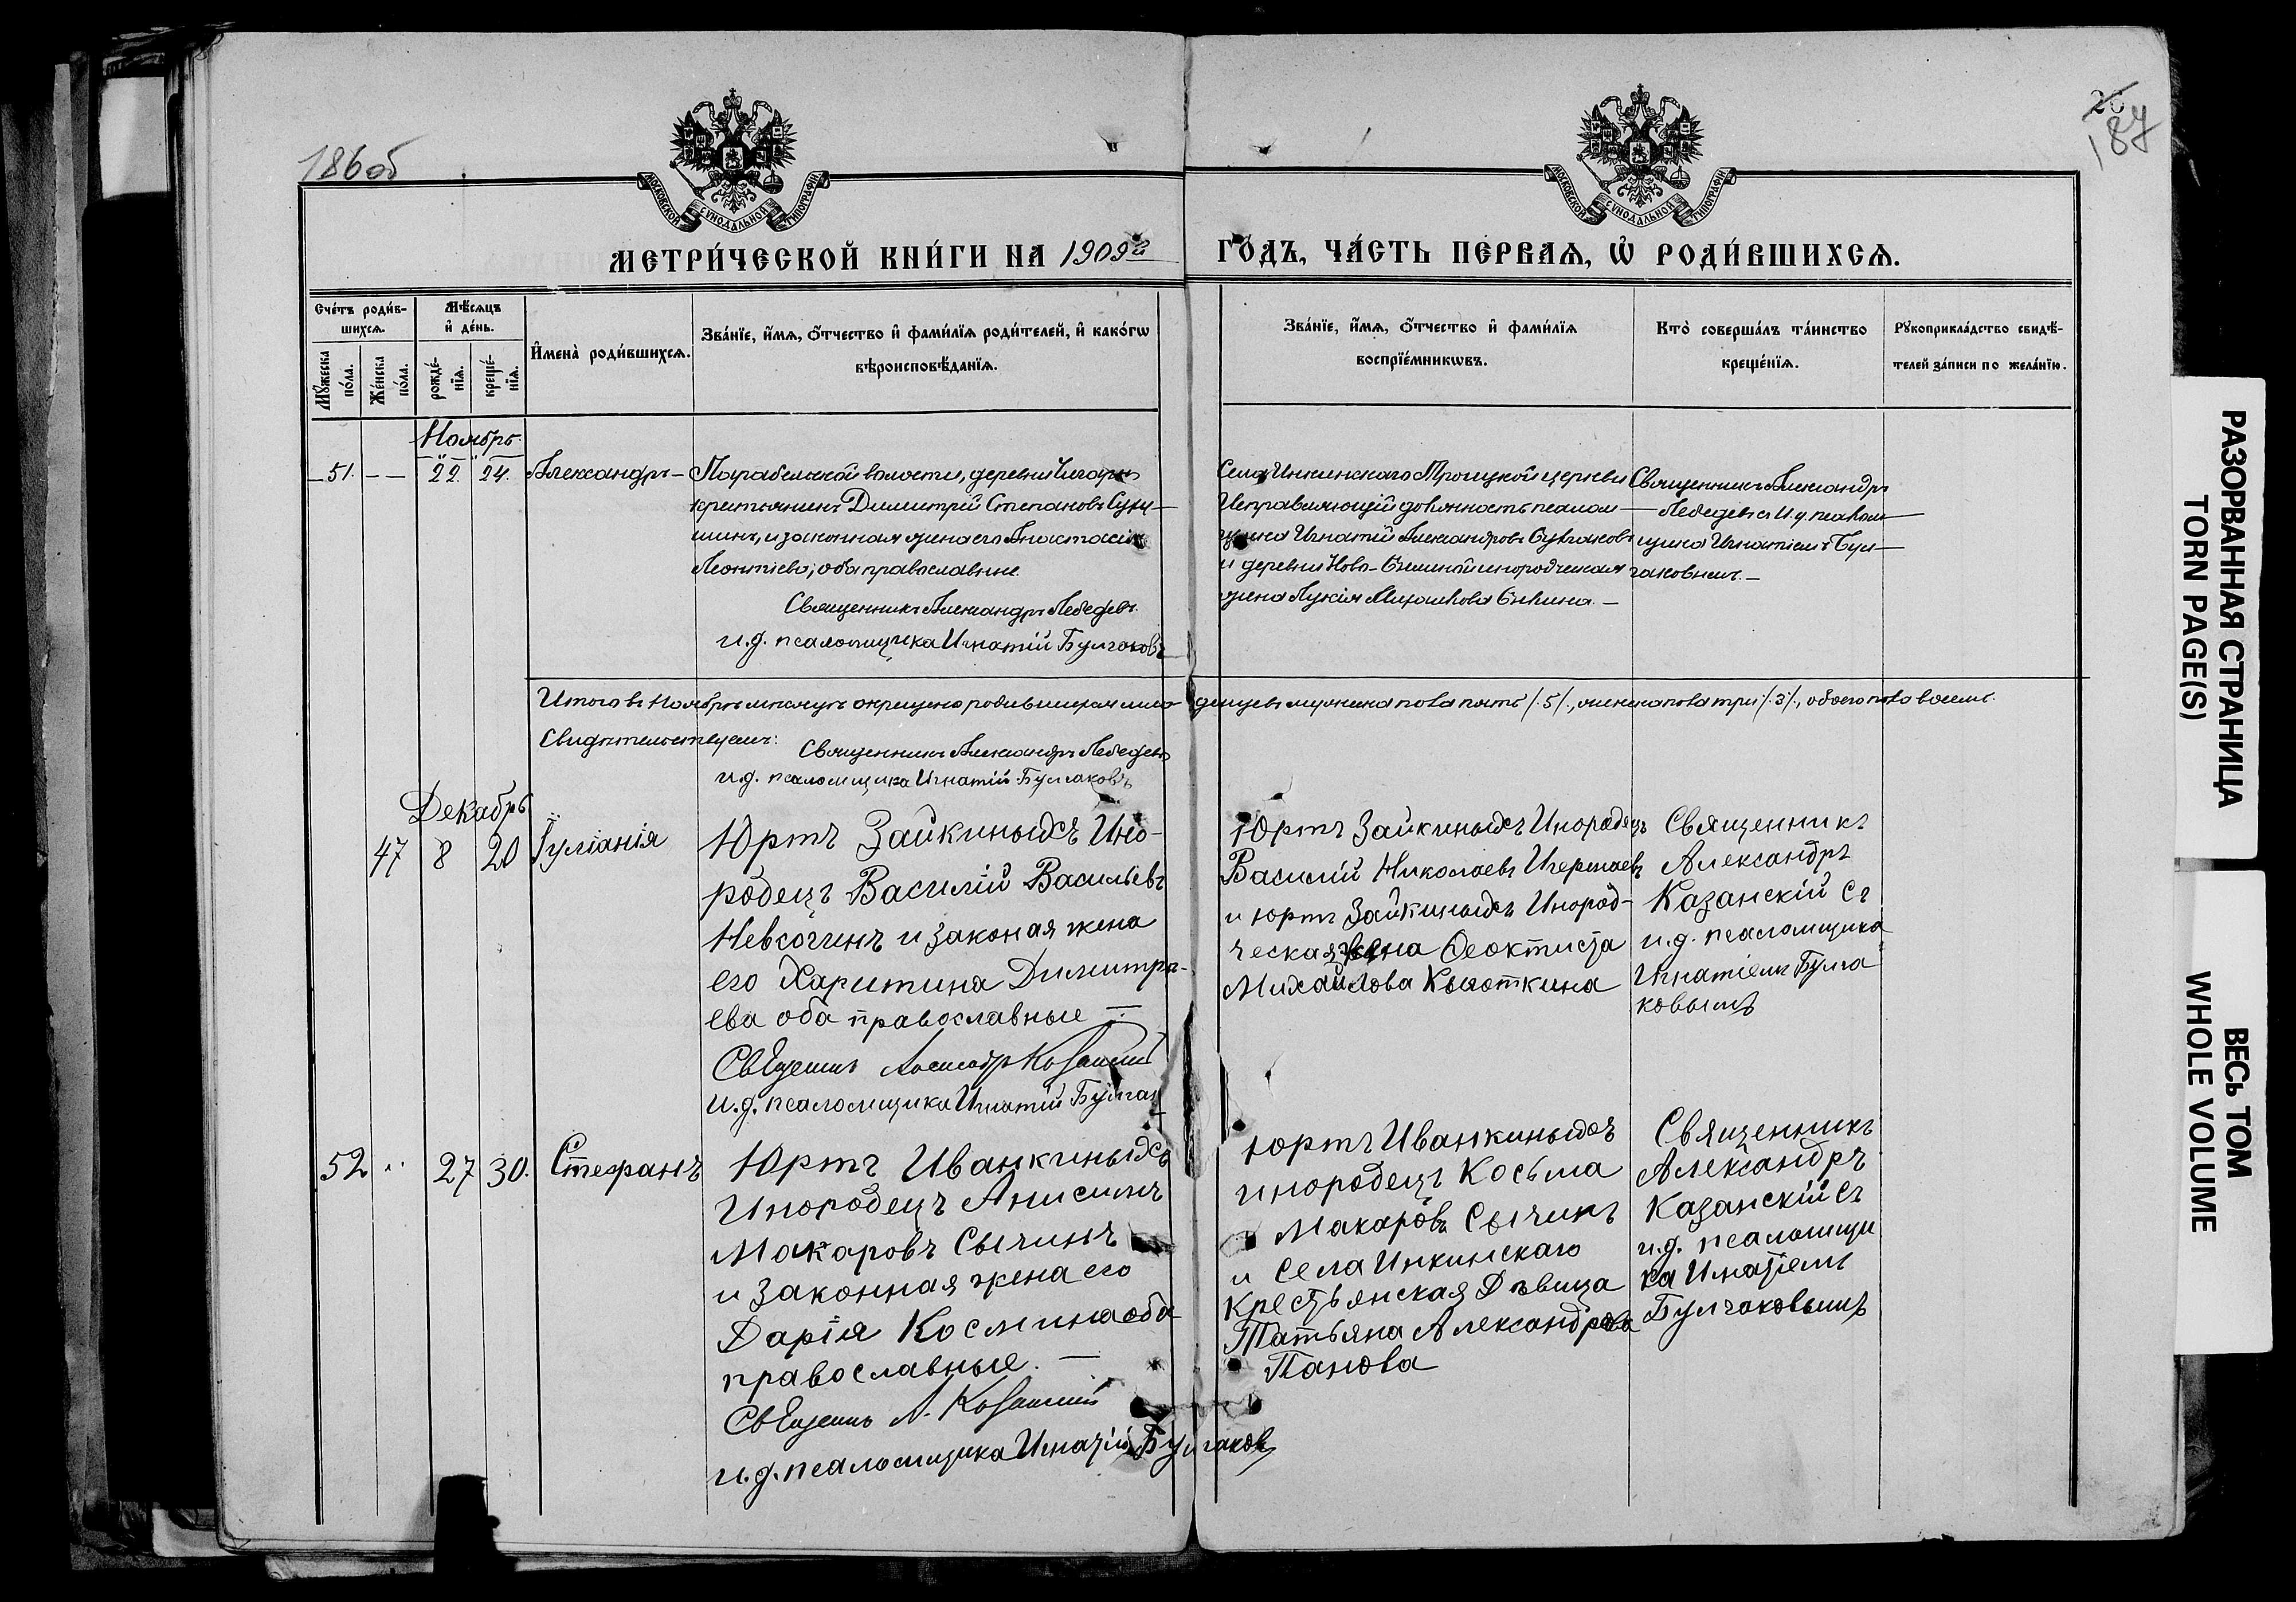 186 об
187
МОСКОВСКОЙ СѴНОДАЛЬНОЙ ТИПОГРАФИИ
МОСКОВСКОЙ СѴНОДАЛЬНОЙ ТИПОГРАФИИ
МЕТРИ́ЧЕСКОЙ КНИ́ГИ НА 1909й ГО́ДЪ, ЧА́СТЬ ПЕ́РВАѦ, Ѡ҆ РОДИ́ВШИХСѦ.
Сче́тъ роди́в-
шихсѧ.
Мꙋ́жеска по́ла.
Же́нска по́ла.
Мѣ́сѧцъ и҆ де́нь.
рожде́-нїѧ.
креще́-нїѧ.
И҆мена̀ роди́вшихсѧ.
Зва́нїе, и҆́мѧ, ѻ҆́тчество и҆ фами́лїѧ роди́телей, и҆ како́гѡ
вѣроисповѣ́данїѧ.
Зва́нїе, и҆́мѧ, ѻ҆́тчество и҆ фами́лїѧ
воспрїе́мникѡвъ.
Кто̀ соверша́лъ та́инство
креще́нїѧ.
Рꙋкоприкла́дство свидѣ́-
телей за́писи по жела́нїю.
Ноябрь.
51. — — 22. 24. Александръ —
Парабельской волости, деревни
крестьянинъ Димитрій Степановъ
шинъ, и законная жена его Анастасія
Леонтіева; оба православные.
Священникъ Александръ Лебедевъ.
и.д. псаломщика Игнатій Булгаковъ
Села Инкинскаго Троицкой церкви
Исправляющій должность псалом —
щика Игнатій Александровъ Булгаковъ
и деревни Ново- инородческая
жена Лукія
Священникъ Александръ
Лебедевъ съ И.д. псалом —
щика Игнатіемъ Бул —
гаковымъ. —
Итого въ Ноябрѣ мѣсяцѣ окрещено родившихся мла- денцевъ мужеска пола пять /.5/., женска пола три /.3/., обоего пола восемь.
Свидѣтельствуемъ:
Священникъ Александръ Лебедевъ
и.д. псаломщика Игнатій Булгаковъ
Декабрь
47 8 20 Іуліанія
Юртъ Зайкиныхъ Ино-
родецъ Василій Васильевъ
Невсогинъ и законая жена
его Харитина Димитрі-
ева оба православные —
Александръ Казанскій
и.д. псаломщика Игнатій Булгак
Юртъ Зайкиныхъ Инородецъ
Василій Николаевъ
и юртъ Зайкиныхъ Инород-
ческая жена Ѳеоктиста
Михайлова
Священникъ
Александръ
Казанскій съ
и.д. псаломщика
Игнатіемъ Булга
ковымъ
52 " 27 30. Стефанъ
Юртъ Иванкиныхъ
Инородецъ Анисимъ
Макаровъ Сычинъ
и законная жена его
Дарія Космина оба
православные. —
А. Казанскій
и.д. псаломщика Игнатій Булгаковъ
Юртъ Иванкиныхъ
инородецъ Косьма
Макаровъ Сычинъ
и Села Инкинскаго
Крестьянская Дѣвица
Татьяна Александрова
Панова
Священникъ
Александръ
Казанскій съ
и.д. псаломщи
ка Игнатіемъ
Булгаковымъ
РАЗОРВАННАЯ СТРАНИЦА
TORN PAGE(S)
ВЕСЬ ТОМ
WHOLE VOLUME